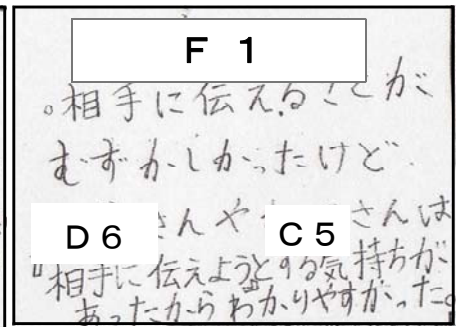 F 1
。相手に伝えることが
むずかしかったけど
D 6 さんや C 5 さんは
"相手に伝えようとする気持ちが
あったからわかりやすかった。